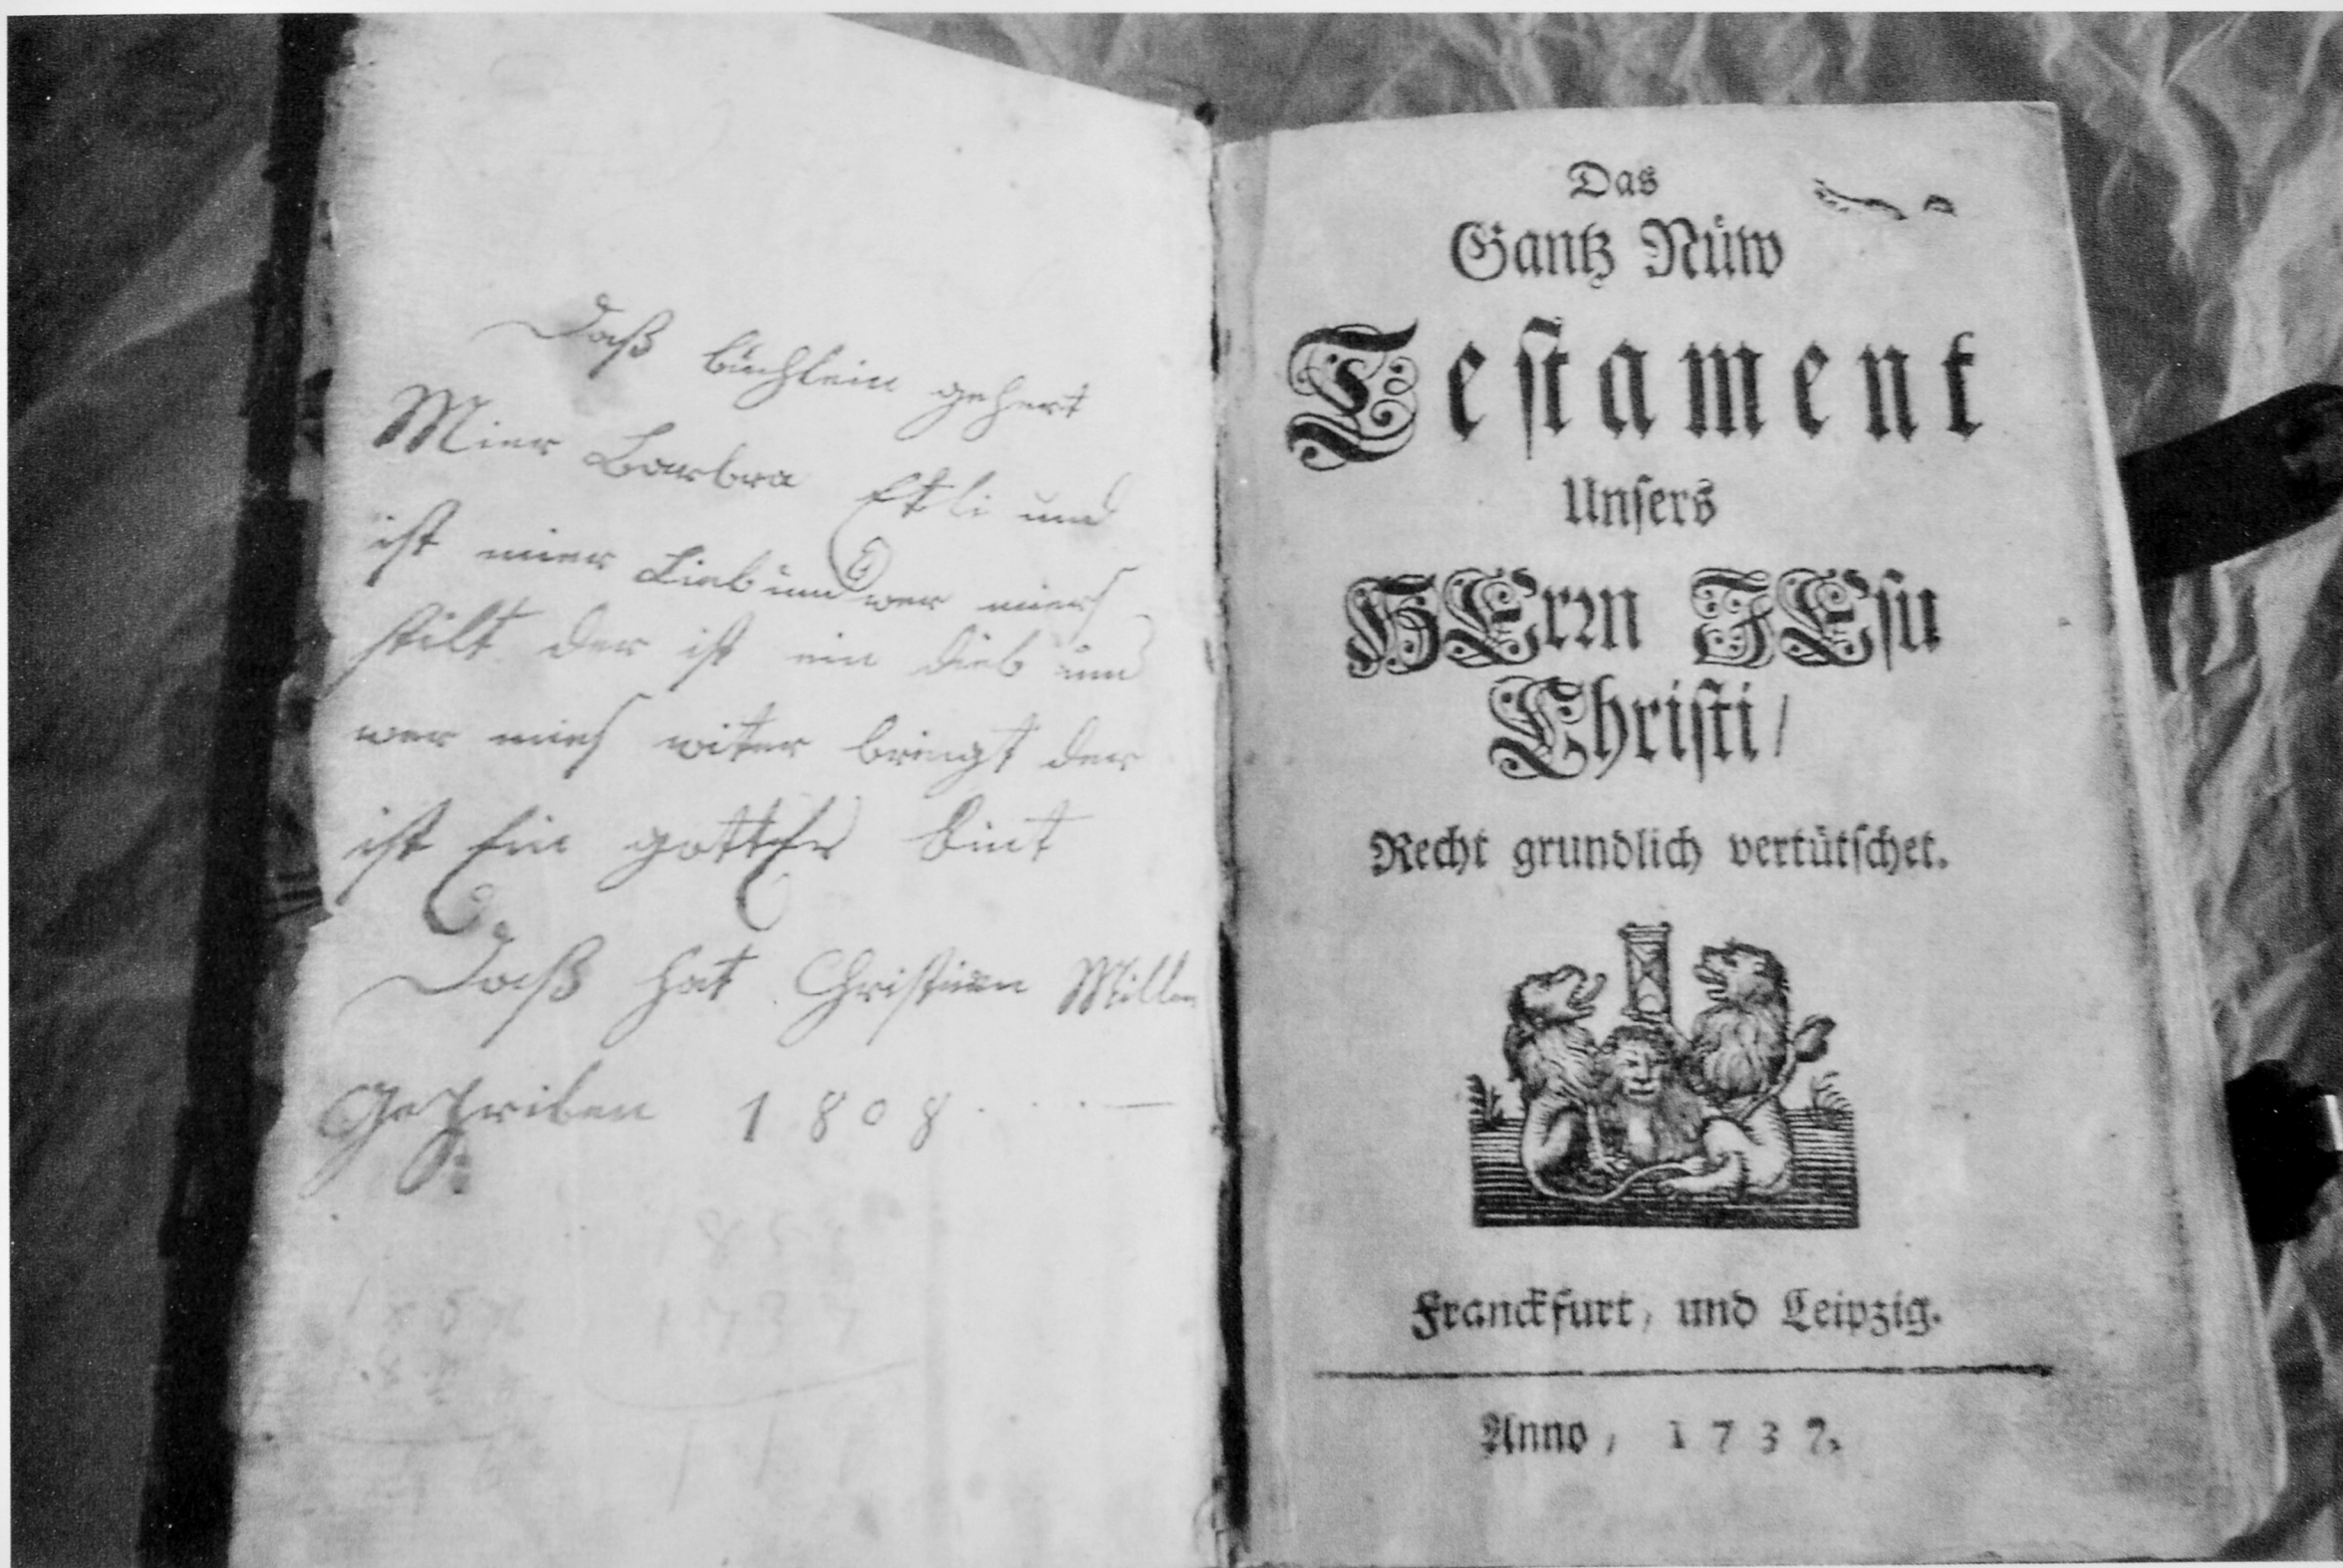 Daß büchlein gehert
Mier Barbra Etli und
ist mier Lieb und wer miers
stilt der ist ein dieb und
wer mirs witer bringt der
ist Ein gottEs kint
Daß hat Christian Miller
Geschriben 1808
Das
Gantz Nüw
Testament
Unsers
HErrn JEsu
Christi /
Recht grundlich vertütschet.
Franckfurt, und Leipzig.
Anno, 1737.